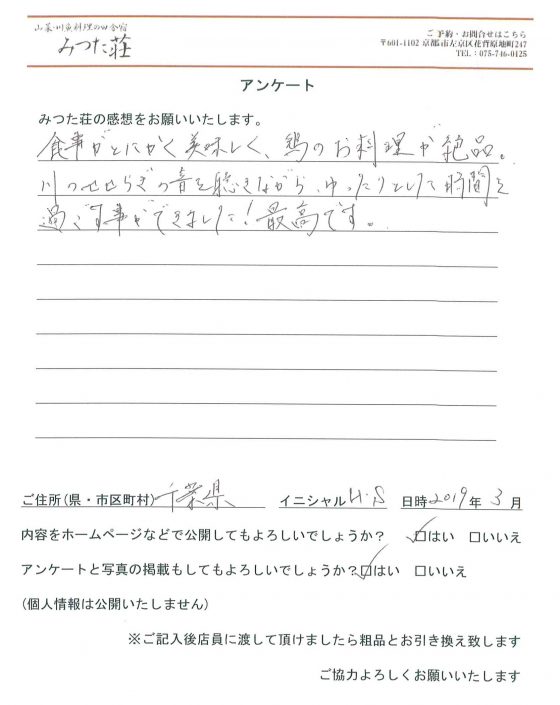 山菜・川魚料理の田舎宿
みつた荘
ご予約・お問合せはこちら
〒601-1102 京都市左京区花脊原地町247
TEL：075-746-0125
アンケート
みつた荘の感想をお願いいたします。
食事がとにかく美味しく、鶏のお料理が絶品。
川のせせらぎの音を聴きながら、ゆったりとした時間を
過ごす事ができました！最高です。
ご住所(県・市区町村) 千葉県 イニシャル H.S 日時 2019 年 3 月
内容をホームページなどで公開してもよろしいでしょうか？ ☑はい □いいえ
アンケートと写真の掲載もしてもよろしいでしょうか？☑はい □いいえ
(個人情報は公開いたしません)
※ご記入後店員に渡して頂けましたら粗品とお引き換え致します
ご協力よろしくお願いいたします